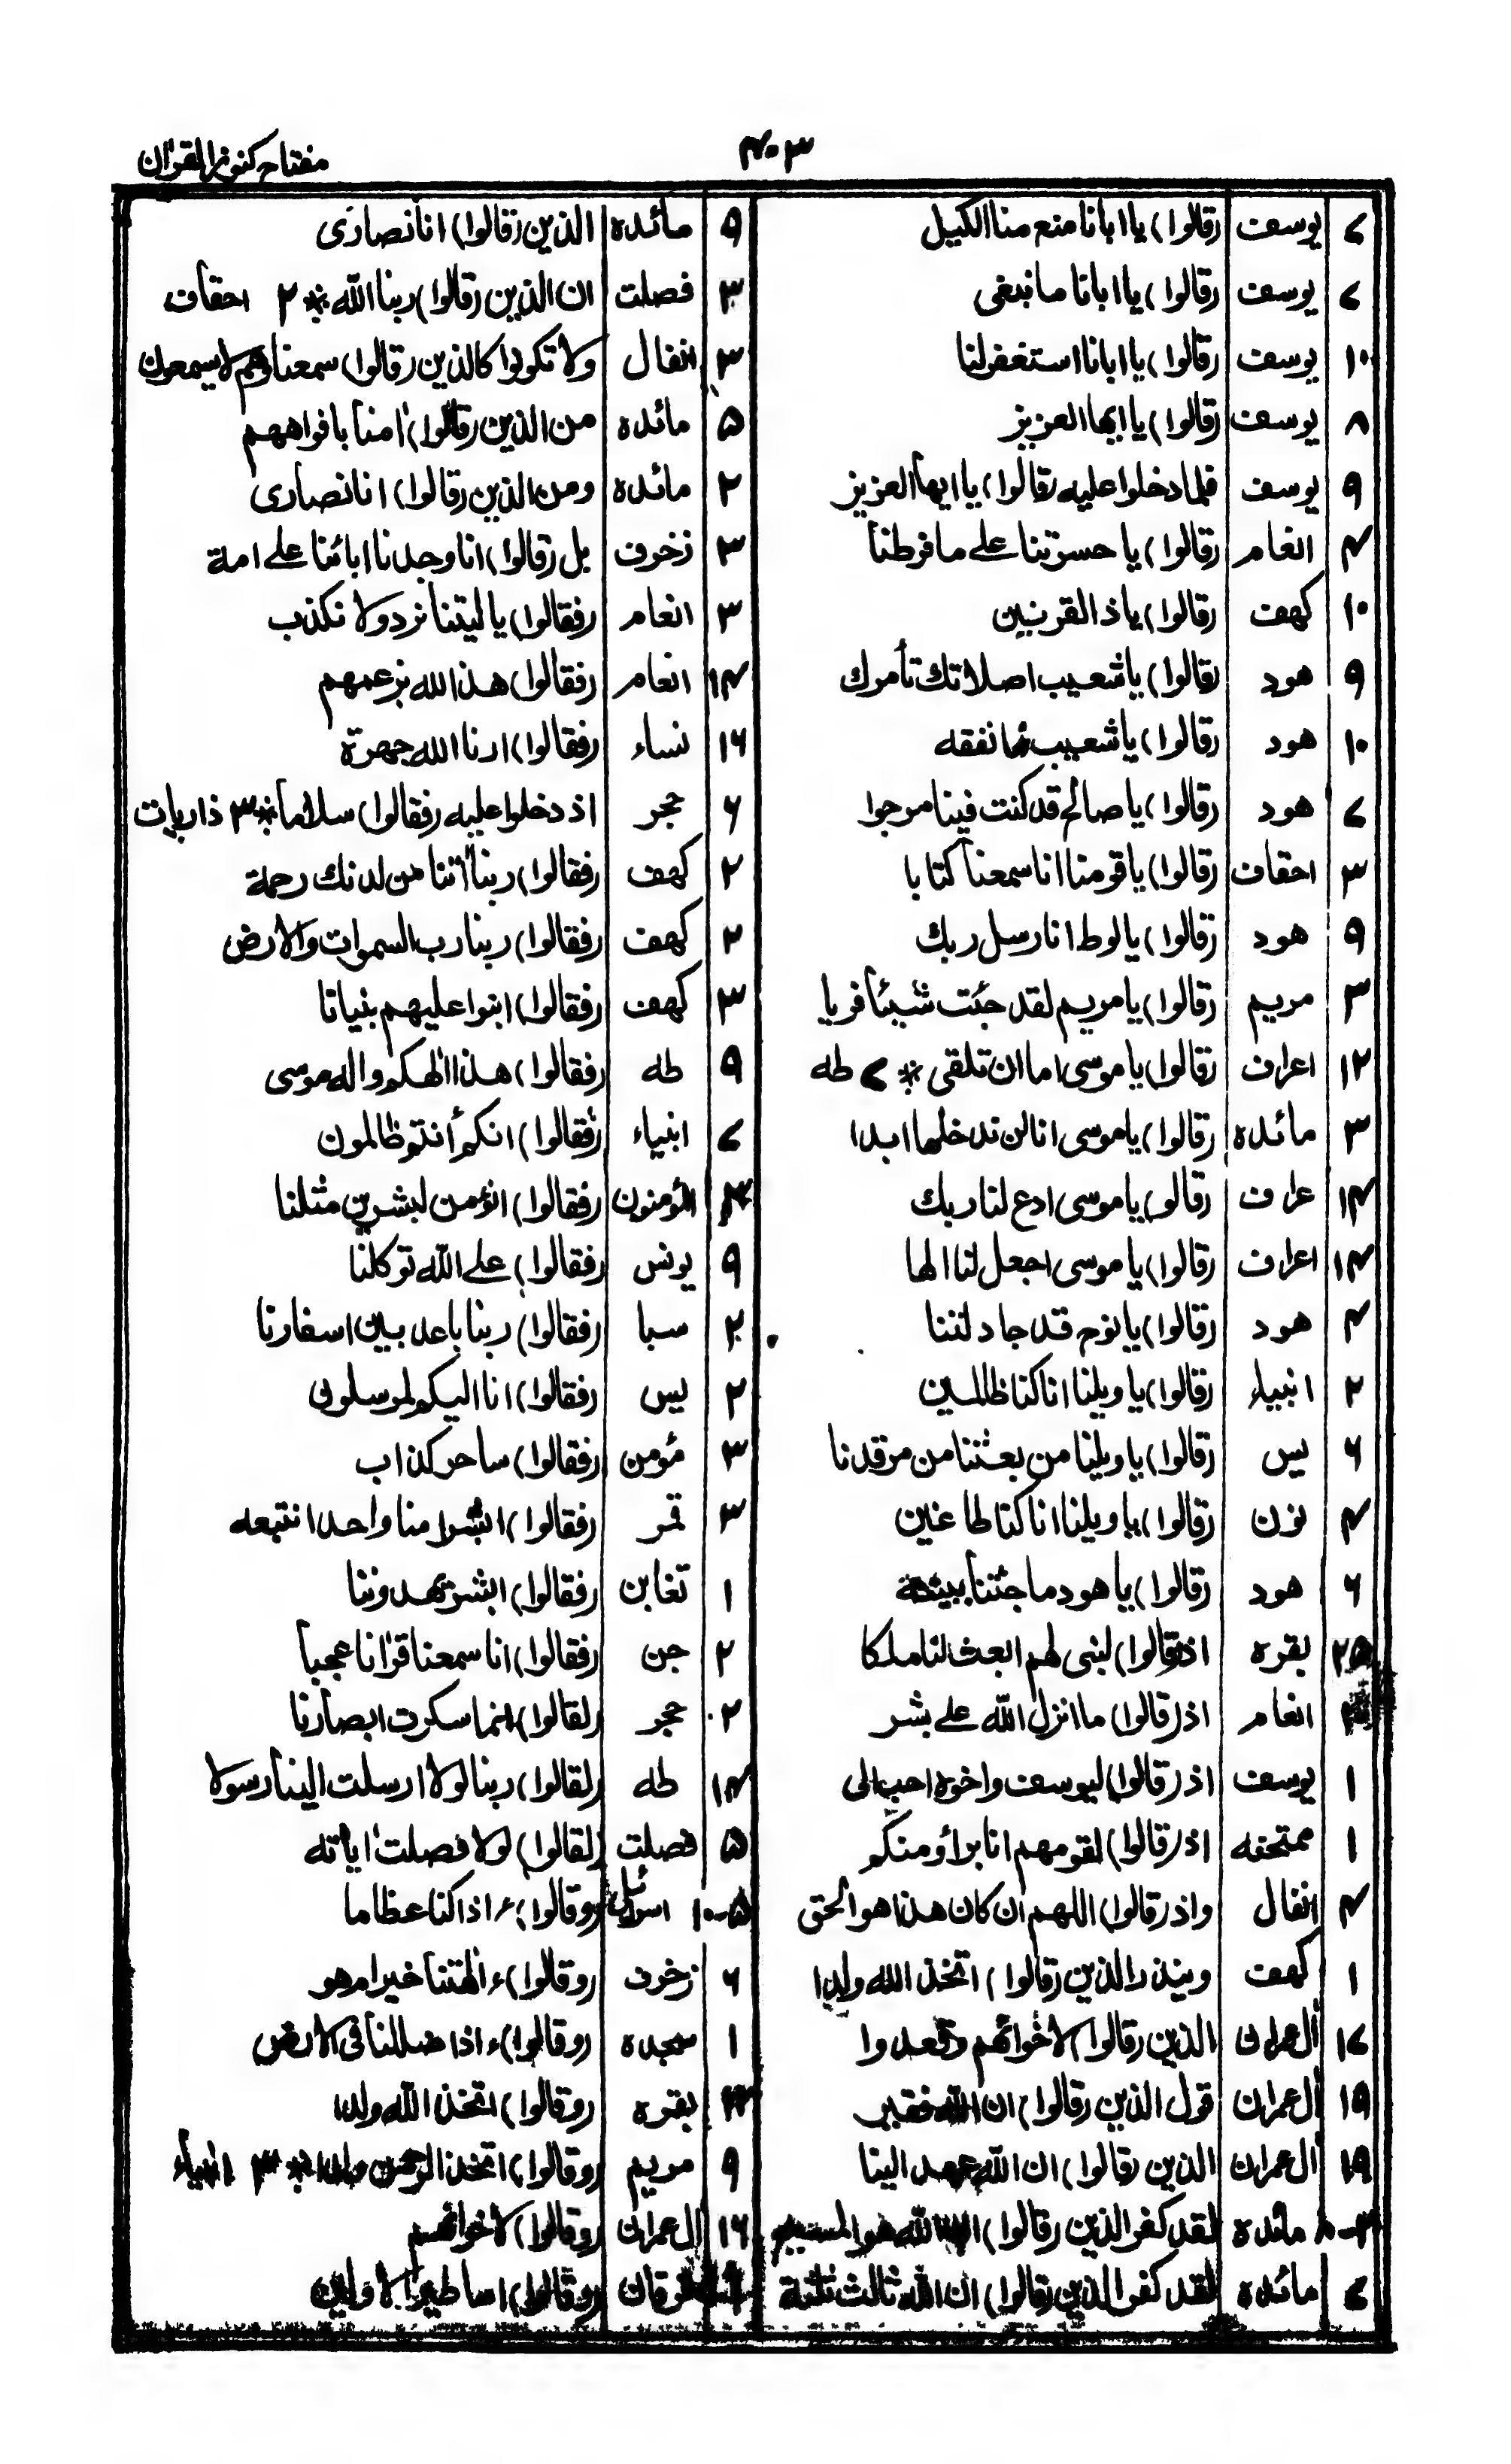 ۴۰۳
مفتاح كنوز القرآن
۷ يوسف (قالوا) يا ابانا منع منا الكيل
۷ يوسف (قالوا) يا ابانا ما نبغى
۱۰ يوسف (قالوا) يا ابانا استغفر لنا
۸ يوسف (قالوا) يا ايها العزيز
۹ يوسف فلما دخلوا عليه (قالوا) يا ايها العزيز
۴ انعام (قالوا) يا حسرتنا على ما فرطنا
۱۰ كهف (قالوا) يا ذا القرنين
۹ هود (قالوا) يا شعيب اصلاتك تأمرك
۱۰ هود (قالوا) يا شعيب ما نفقه
۷ هود (قالوا) يا صالح قد كنت فينا مرجوا
۳ احقاف (قالوا) يا قومنا انا سمعنا كتابا
۹ هود (قالوا) يا لوط انا رسل ربك
۳ مريم (قالوا) يا مريم لقد جئت شيئا فريا
۱۲ اعراف (قالوا) يا موسى اما ان تلقى * ۷ طه
۳ مائده (قالوا) يا موسى انا لن ندخلها ابدا
۱۴ عراف (قالو) يا موسى ادع لنا ربك
۱۴ اعراف (قالوا) يا موسى اجعل لنا الها
۴ هود (قالوا) يا نوح قد جادلتنا
۲ انبياء (قالوا) يا ويلنا انا كنا ظالمين
۶ يس (قالوا) يا ويلنا من بعثنا من مرقدنا
۴ نون (قالوا) يا ويلنا انا كنا طاغين
۶ هود (قالوا) يا هود ما جئتنا ببينة
بقره اذ (قالوا) لنبى لهم ابعث لنا ملكا
انعام اذ (قالوا) ما انزل الله على بشر
۱ يوسف اذ (قالوا) ليوسف واخوه احب الى
۱ ممتحنه اذ (قالوا) لقومهم انا برآؤ منكم
۴ انفال واذ (قالوا) اللهم ان كان هذا هو الحق
۱ كهف وينذر الذين (قالوا) اتخذ الله ولدا
۱۷ آل عمران الذين (قالوا) لاخوانهم وقعدوا
۱۹ آل عمران قول الذين (قالوا) ان الله فقير
۱۹ آل عمران الذين (قالوا) ان الله عهد الينا
مائده لقد كفر الذين (قالوا) ان الله هو المسيح
۷ مائده لقد كفر الذين (قالوا) ان الله ثالث ثلثة
۹ مائده الذين (قالوا) انا نصارى
۳ فصلت ان الذين (قالوا) ربنا الله * ۲ احقاف
۳ انفال ولا تكونوا كالذين (قالوا) سمعنا وهم لا يسمعون
۵ مائده من الذين (قالوا) امنا بافواههم
۲ مائده ومن الذين (قالوا) انا نصارى
۳ زخرف بل (قالوا) انا وجدنا ابائنا على امة
۳ انعام (فقالوا) يا ليتنا نرد ولا نكذب
۱۴ انعام (فقالوا) هذا لله بزعمهم
۱۶ نساء (فقالوا) ارنا الله جهرة
۶ حجر اذ دخلوا عليه (فقالوا) سلاما * ۳ ذاريات
۲ كهف (فقالوا) ربنا أتنا من لدنك رحمة
۲ كهف (فقالوا) ربنا رب السموات والارض
۳ كهف (فقالوا) ابنوا عليهم بنيانا
۹ طه (فقالوا) هذا الهكم واله موسى
۷ انبياء (فقالوا) انكم أنتم ظالمون
المؤمنون (فقالوا) انؤمن لبشرين مثلنا
۹ يونس (فقالوا) على الله توكلنا
۲ سبا (فقالوا) ربنا باعد بين اسفارنا
۲ يس (فقالوا) انا اليكم لمرسلون
۳ مؤمن (فقالوا) ساحر كذاب
۳ قمر (فقالوا) ابشرا منا واحدا نتبعه
۱ تغابن (فقالوا) ابشر يهدوننا
۲ جن (فقالوا) انا سمعنا قرآنا عجبا
۲ حجر (لقالوا) انما سكرت ابصارنا
۱۴ طه (لقالوا) ربنا لولا ارسلت الينا رسولا
۵ فصلت (لقالوا) لولا فصلت اياته
۵-۱۰ اسرائيل (وقالوا) ءاذا كنا عظاما
۶ زخرف (وقالوا) ءالهتنا خير ام هو
۱ سجده (وقالوا) ءاذا ضللنا فى الارض
بقره (وقالوا) اتخذ الله ولدا
۹ مريم (وقالوا) اتخذ الرحمن ولدا * انبياء
۱۶ آل عمران (وقالوا) لاخوانهم
فرقان (وقالوا) اساطير الاولين